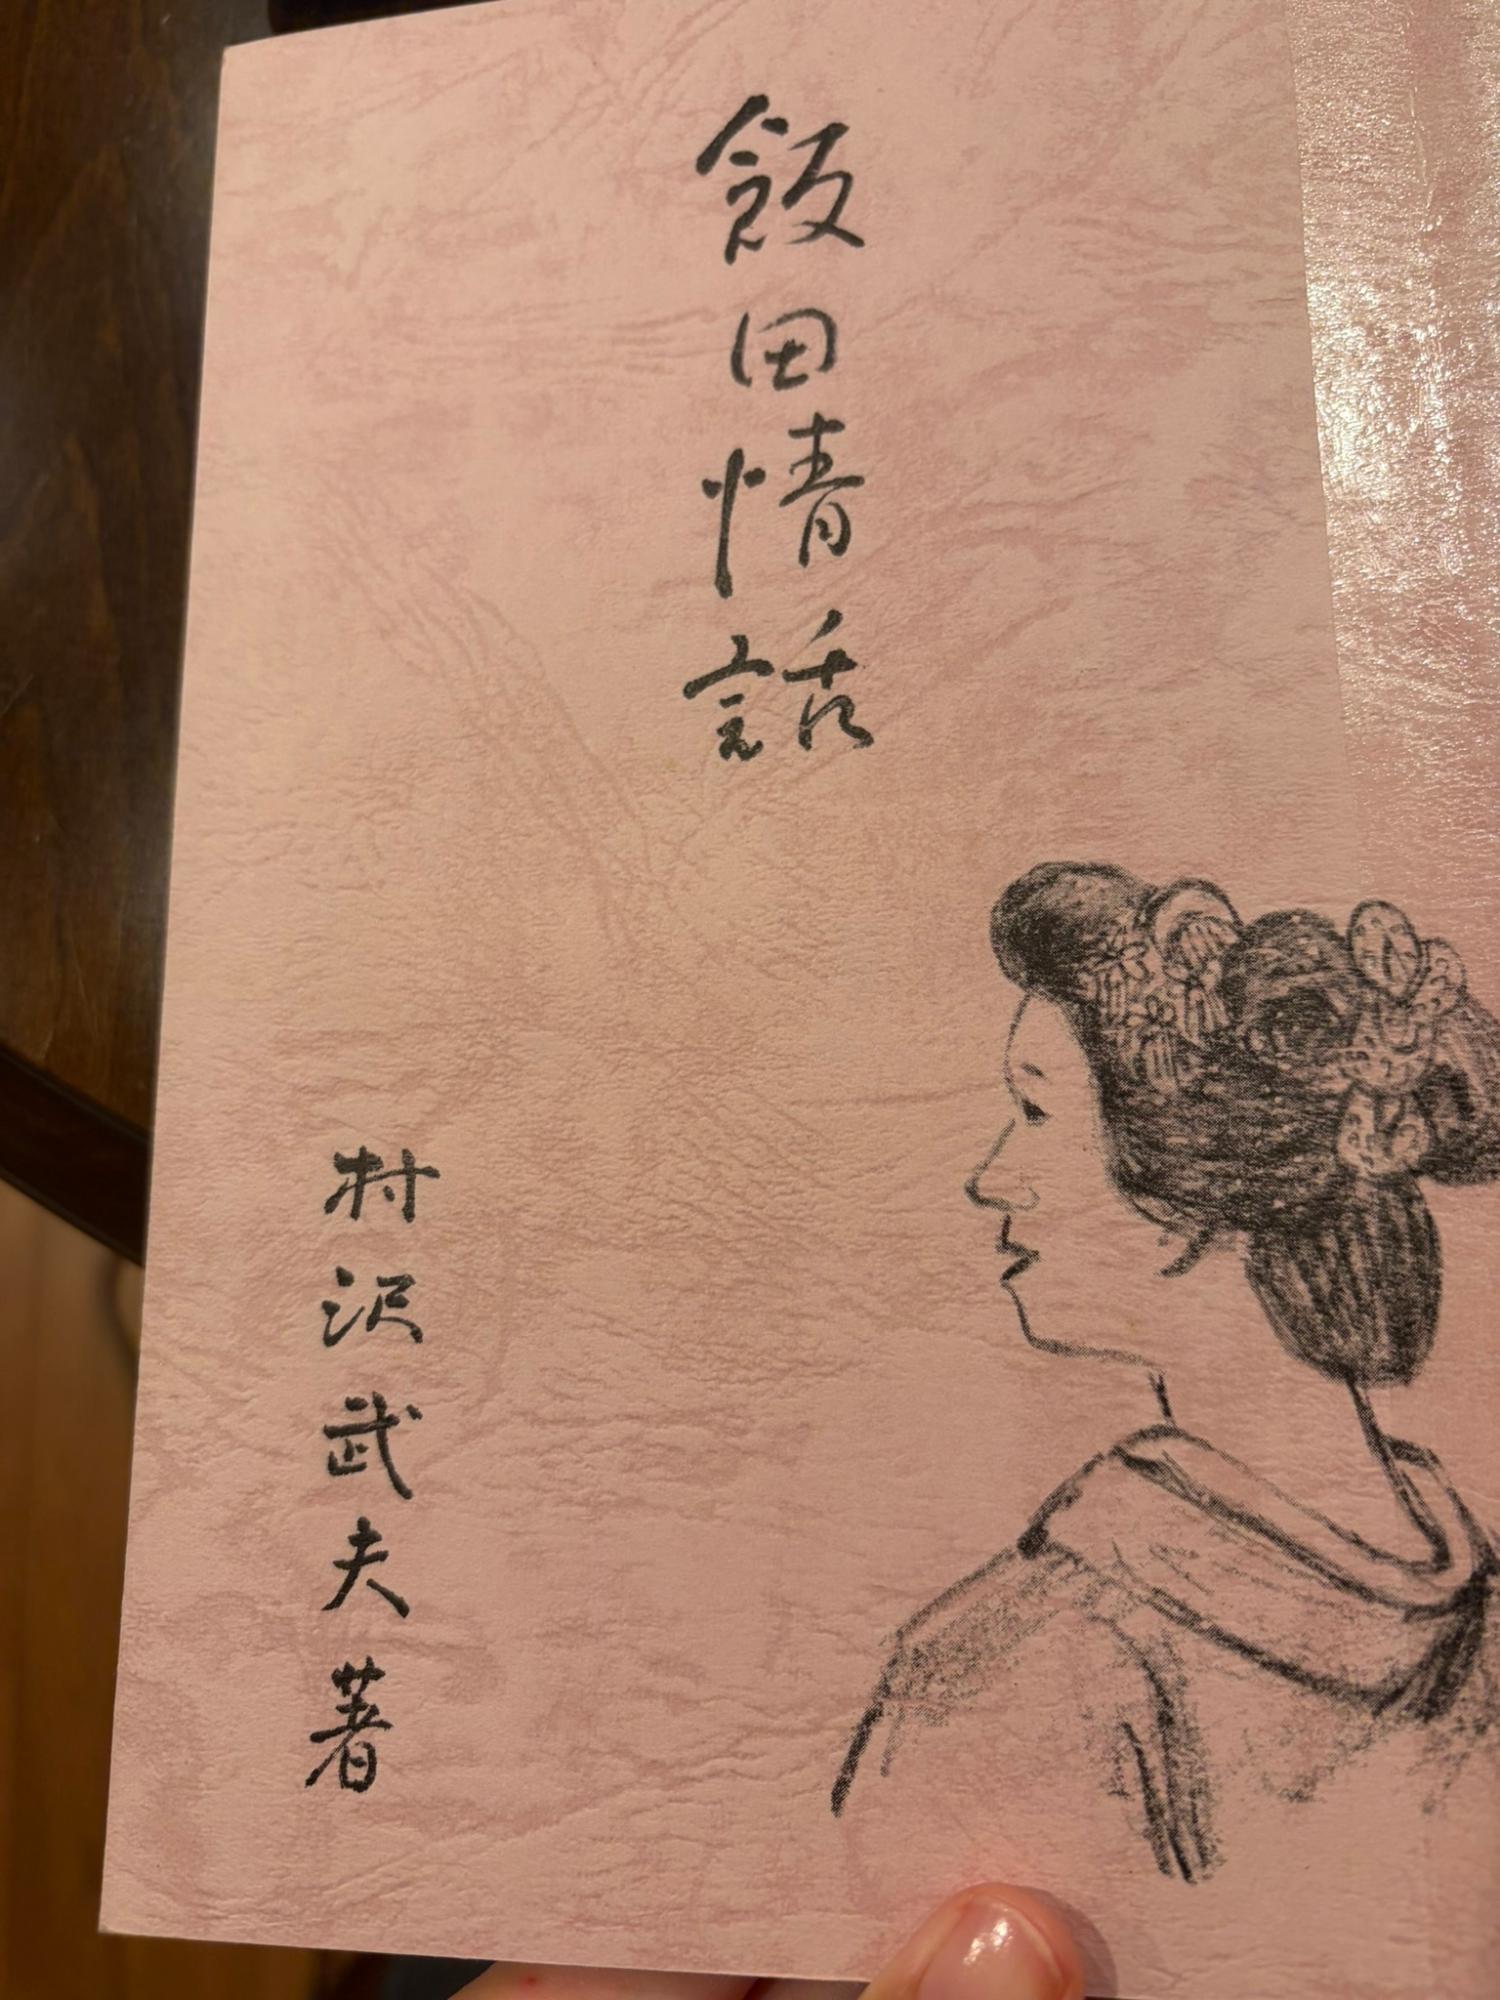 飯田情話
村沢武夫著